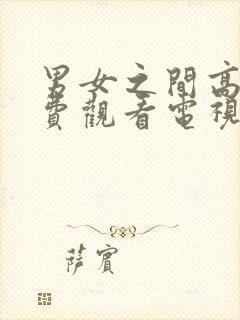 男女之間高
費觀看電視
薩賓